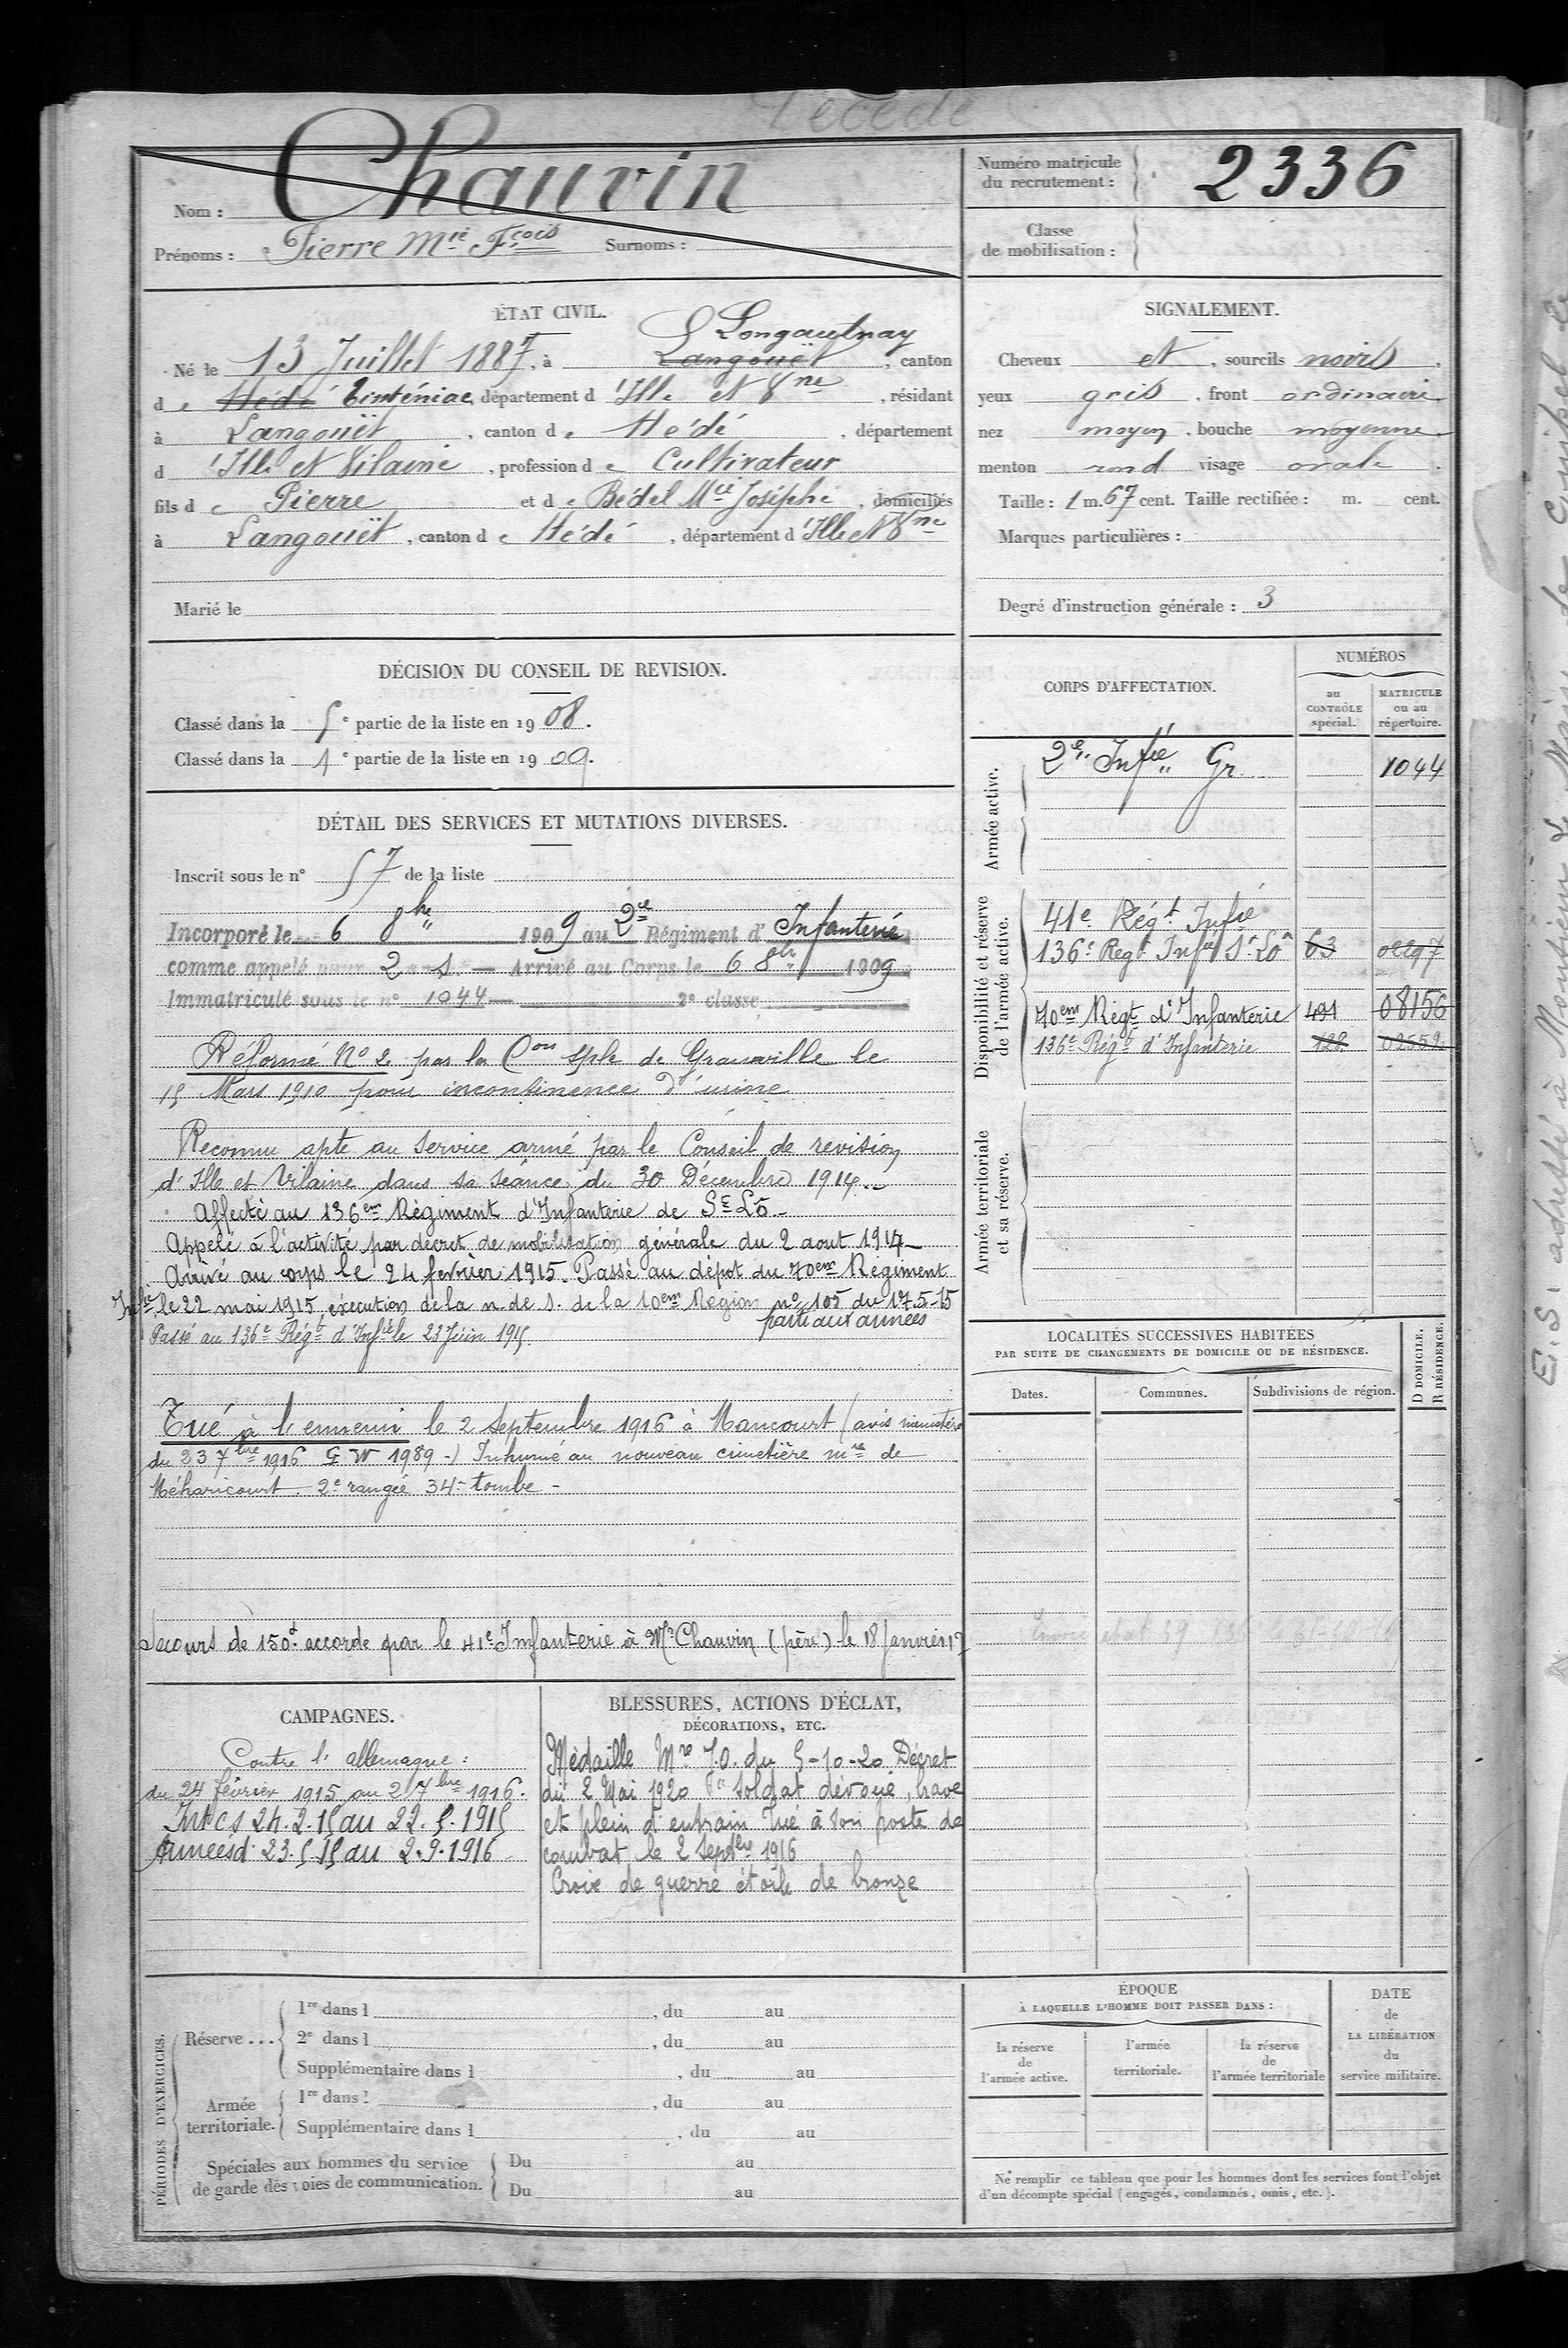 Décédé
Nom : Chauvin
Prénoms : Pierre Mie Fçois Surnoms :
Numéro matricule du recrutement : 2336
Classe de mobilisation :
ÉTAT CIVIL.
Longaulnay
Né le 13 Juillet 1887, à Langouët, canton
de Hédé Tinténiac, département d'Ille et Vne, résidant
à Langouët, canton de Hédé, département
d'Ille et Vilaine, profession de Cultivateur
fils de Pierre et de Bédel Mie Josèphe, domiciliés
à Langouët, canton de Hédé, département d'Ille et Vne
Marié le
SIGNALEMENT.
Cheveux et, sourcils noirs.
yeux gris, front ordinaire
nez moyen, bouche moyenne
menton rond visage ovale.
Taille : 1 m. 67 cent. Taille rectifiée : m. cent.
Marques particulières :
Degré d'instruction générale : 3
DÉCISION DU CONSEIL DE REVISION.
Classé dans la 5e partie de la liste en 1908.
Classé dans la 1e partie de la liste en 1909.
DÉTAIL DES SERVICES ET MUTATIONS DIVERSES.
Inscrit sous le n° 57 de la liste
Incorporé le 6 8bre 1909 au 2e Régiment d'Infanterie
comme appelé pour 2 ans — Arrivé au Corps le 6 8bre 1909
Immatriculé sous le n° 1044 — 2e classe
Réformé No 2 par la Con sple de Granville le
15 Mars 1910 pour incontinence d'urine
Reconnu apte au service armé par le Conseil de revision
d'Ille et Vilaine dans sa séance du 30 Décembre 1914.
Affecté au 136em Régiment d'Infanterie de St Lô -
Appelé à l'activité par décret de mobilisation générale du 2 aout 1914 -
Arrivé au corps le 24 fevrier 1915. Passé au dépot du 70em Régiment
Infie le 22 mai 1915 éxecution de la n. de s. de la 10em Région no 105 du 17.5-15
parti aux armées
Passé au 136e Régt d'Infie le 23 Juin 1915.
Tué à l'ennemi le 2 Septembre 1916 à Mancourt (avis ministère
du 23 7bre 1916 G W 1989 -) Inhumé au nouveau cimetière mre de
Méharicourt. 2e rangée 34e tombe -
Secours de 150f accordé par le 41e Infanterie à Mr Chauvin (père) le 18 janvier 17
CORPS D'AFFECTATION.
NUMÉROS
au CONTRÔLE spécial.
MATRICULE ou au répertoire.
Armée active.
2e Infie Gr. 1044
Disponibilité et réserve de l'armée active.
41e Régt Infie
136e Regt Infie St Lô 63 02297
70em Régt d'Infanterie 491 08156
136e Régt d'Infanterie 128 02552
Armée territoriale et sa réserve.
LOCALITÉS SUCCESSIVES HABITÉES
PAR SUITE DE CHANGEMENTS DE DOMICILE OU DE RÉSIDENCE.
Dates. Communes. Subdivisions de région. D DOMICILE. R RÉSIDENCE.
CAMPAGNES.
Contre l'allemagne :
du 24 février 1915 au 2 7bre 1916.
Int cs 24.2.15 au 22.5.1915
Armées d. 23.5.15 au 2.9.1916
BLESSURES, ACTIONS D'ÉCLAT,
DÉCORATIONS, ETC.
Médaille Mre J.O. du 5-10-20 Décret
du 2 Mai 1920 soldat dévoué, brave
et plein d'entrain tué à son poste de
combat le 2 Septbre 1916
Croix de guerre étoile de bronze
PÉRIODES D'EXERCICES.
Réserve ... 1re dans l , du au
2e dans l , du au
Supplémentaire dans l , du au
Armée territoriale. 1re dans l , du au
Supplémentaire dans l , du au
Spéciales aux hommes du service de garde des voies de communication. Du au
Du au
ÉPOQUE
À LAQUELLE L'HOMME DOIT PASSER DANS :
la réserve de l'armée active.
l'armée territoriale.
la réserve de l'armée territoriale
DATE de LA LIBÉRATION du service militaire.
Ne remplir ce tableau que pour les hommes dont les services font l'objet
d'un décompte spécial (engagés, condamnés, omis, etc.).